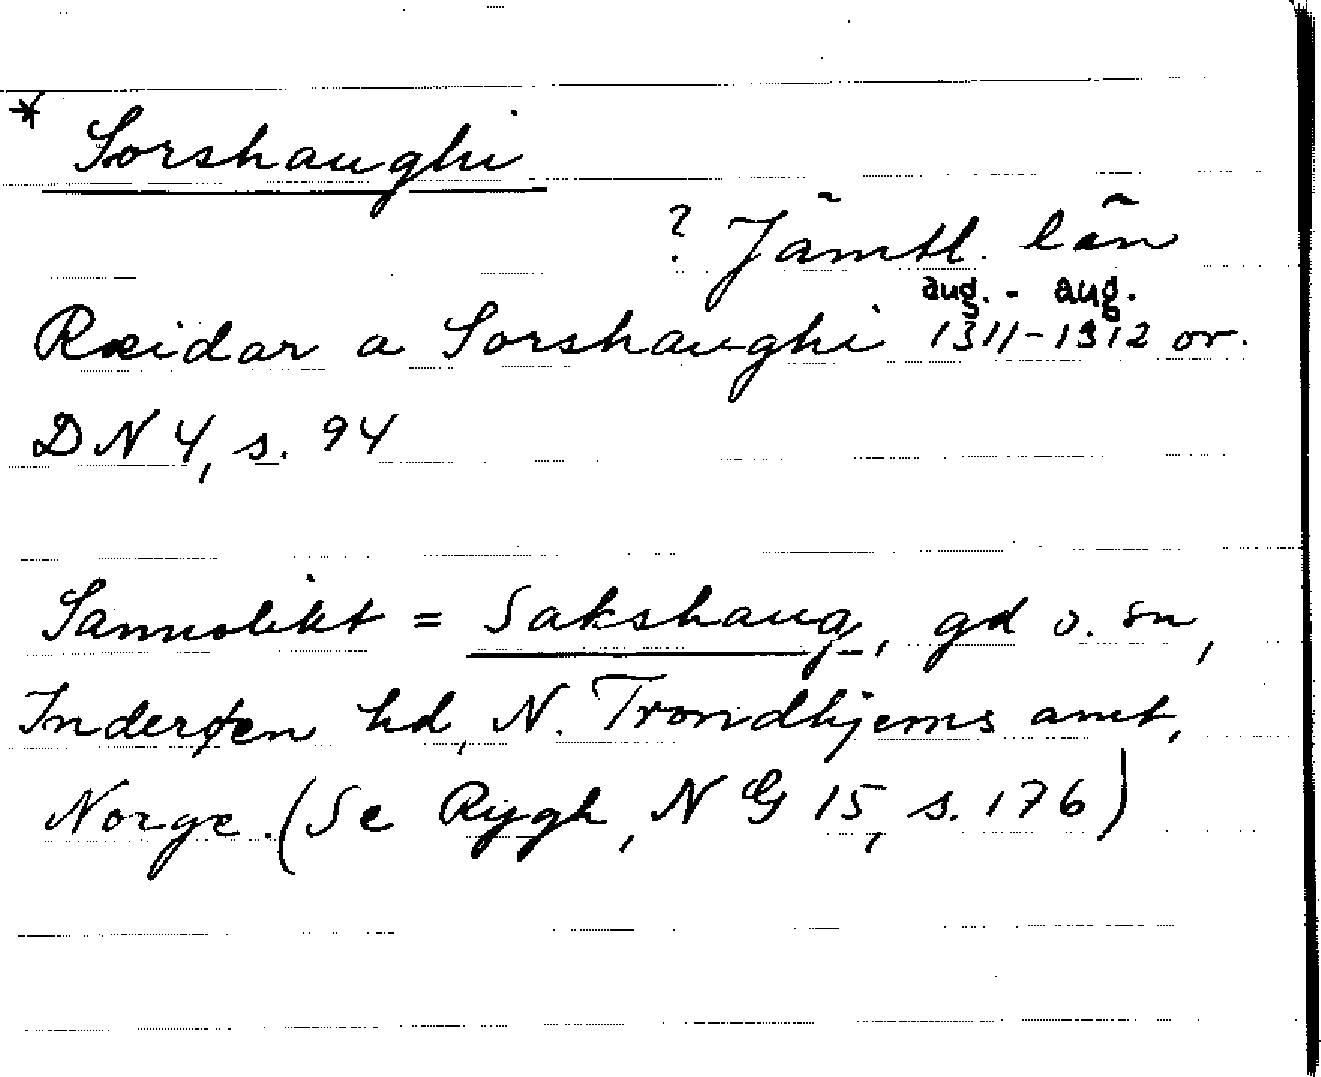 * Sorshaughi
? Jämtl. län
aug. - aug.
Ræidar a Sorshaughi 1311-1312 or.
DN 4, s. 94
Sannolikt = Sakshaug, gd o. sn,
Inderøen hd, N. Trondhjems amt,
Norge. (Se Rygh, NG 15, s. 176)